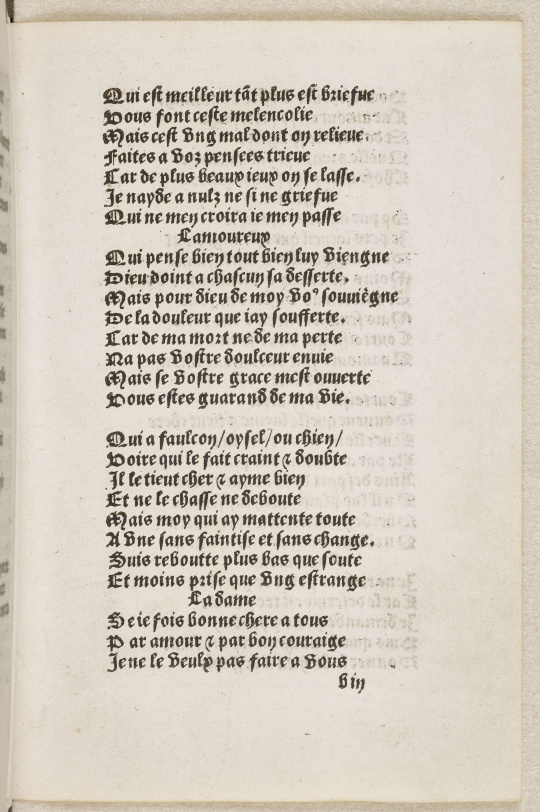 Qui est meilleur tãt plus est briefue
Vous font ceste melencolie
Mais cest vng mal dont on relieue.
Faites a voz pensees trieue
Car de plus beaux ieux on se lasse.
Je nayde a nulz ne si ne griefue
Qui ne men croira ie men passe
Lamoureux
Qui pense bien tout bien luy viengne
Dieu doint a chascun sa desserte.
Mais pour dieu de moy voꝰ souuiẽgne
De la douleur que iay soufferte.
Car de ma mort ne de ma perte
Na pas vostre doulceur enuie
Mais se vostre grace mest ouuerte
Vous estes guarand de ma vie.
Qui a faulcon/oysel/ou chien/
Voire qui le fait craint ⁊ doubte
Il le tieut cher ⁊ ayme bien
Et ne le chasse ne deboute
Mais moy qui ay mattente toute
A vne sans faintise et sans change.
Suis reboutte plus bas que soute
Et moins prise que vng estrange
La dame
Se ie fois bonne chere a tous
Par amour ⁊ par bon couraige
Je ne le veulx pas faire a vous
b iij